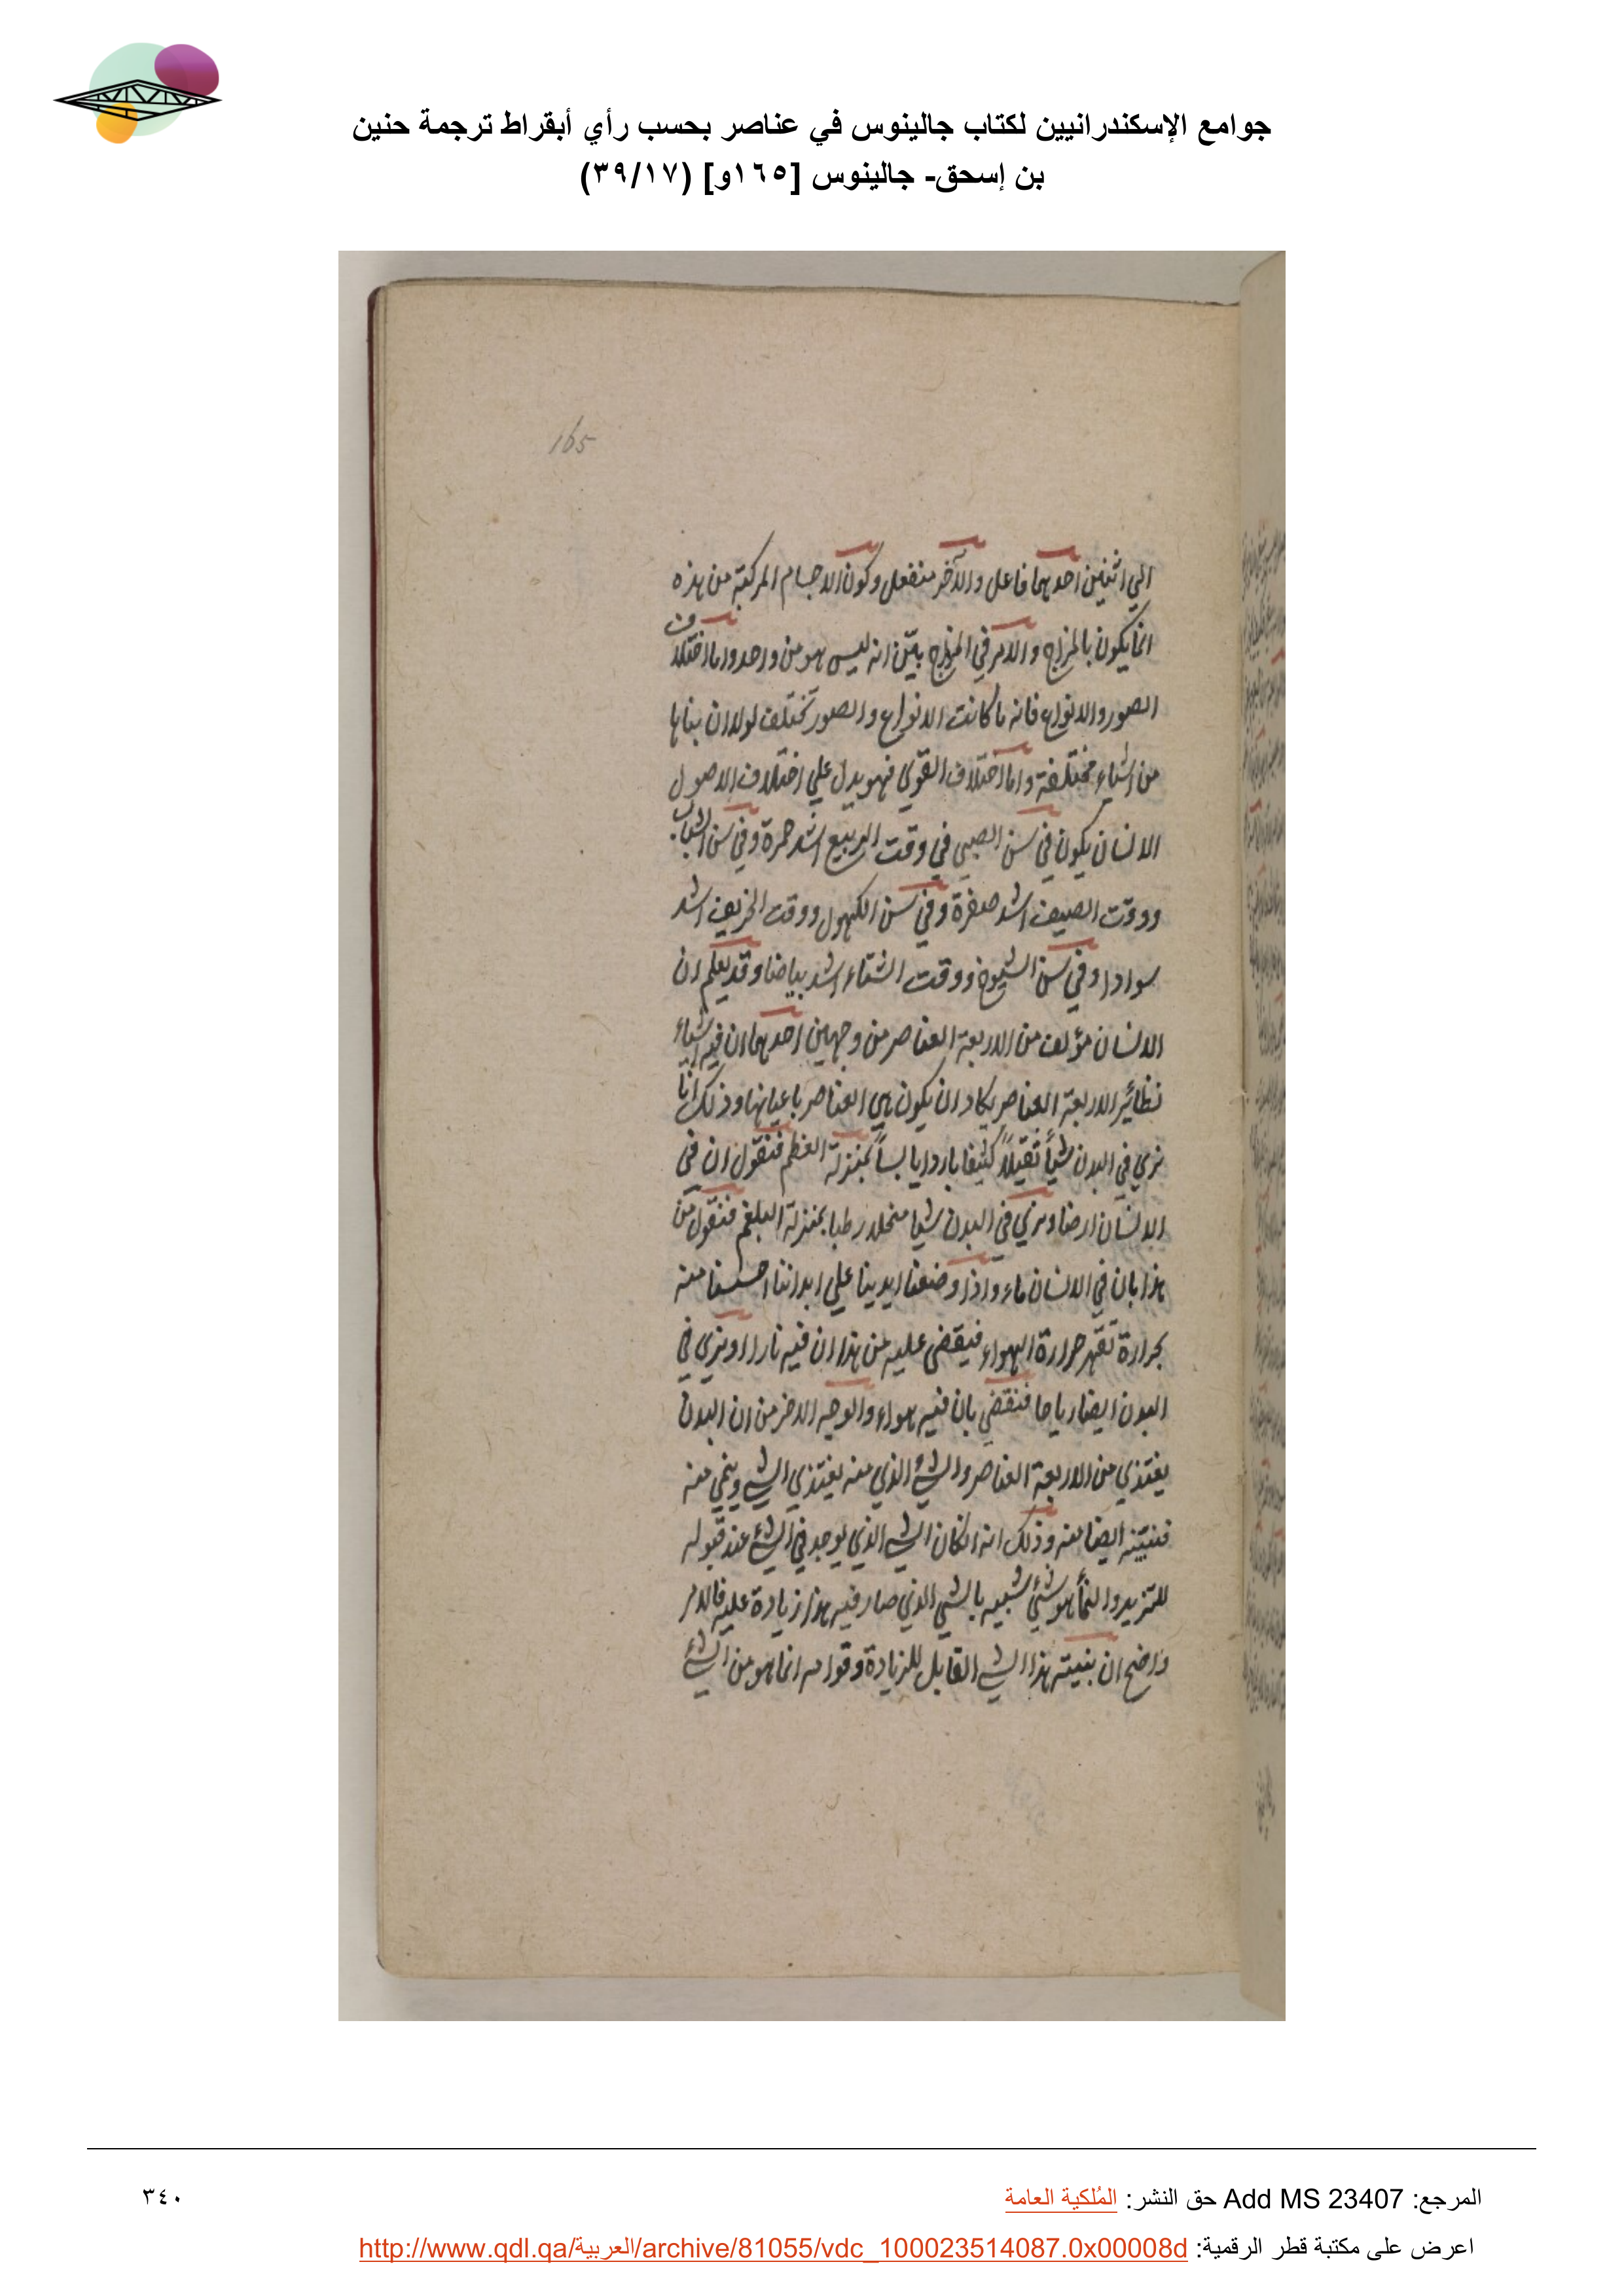 جوامع الإسكندرانيين لكتاب جالينوس في عناصر بحسب رأي أبقراط ترجمة حنين
بن إسحق- جالينوس [١٦٥و] (٣٩/١٧)
165
الي اثنين احدهما فاعل والآخر منفعل وكون الاجسام المركبة من هذه
انما يكون بالمزاج والامر في المزاج بيّن انه ليس هو من واحد واما اختلاف
الصور والانواع فانه ما كانت الانواع والصور تختلف لولا ان بناها
من اشياء مختلفة واما اختلاف القوي فهو يدل علي اختلاف الاصول
الانسان يكون في سن الصبي في وقت الربيع اشد حمرة وفي سن الشباب
ووقت الصيف اشد صفرة وفي سن الكهول ووقت الخريف اشد
سوادا وفي سن الشيوخ ووقت الشتاء اشد بياضا وقد يعلم ان
الانسان مؤلف من الاربعة العناصر من وجهين احدهما ان فيه اشياء
نظائر الاربعة العناصر يكاد ان يكون هي العناصر باعيانها وذلك انا
نري في البدن شيأً ثقيلاً كثيفا باردا يابساً بمنزلة العظم فنقول ان في
الانسان ارضا ونري في البدن شيا منحلا رطبا بمنزلة البلغم فنقول من
هذا بان في الانسان ماء واذا وضعنا ايدينا علي ابداننا احسسنا منه
بحرارة تقهر حرارة الهواء فيقضي عليه من هذا ان فيه نارا ونري في
البدن ايضا رياحا فنقضي بان فيه هواء والوجه الاخر من ان البدن
يغتذي من الاربعة العناصر والشئ الذي منه يغتذي الشي وينمي منه
فبنيته ايضا منه وذلك انه اذا كان الشي الذي يوجد في الشئ عند قبوله
للتزيد والنمأ هو شئ شبيه بالشي الذي صار فيه هذا زيادة عليه فالامر
واضح ان بنيته هذا الشي القابل للزيادة وقوامه انما هو من الشئ
المرجع: Add MS 23407 حق النشر: المُلكية العامة
٣٤٠
اعرض على مكتبة قطر الرقمية: http://www.qdl.qa/العربية/archive/81055/vdc_100023514087.0x00008d